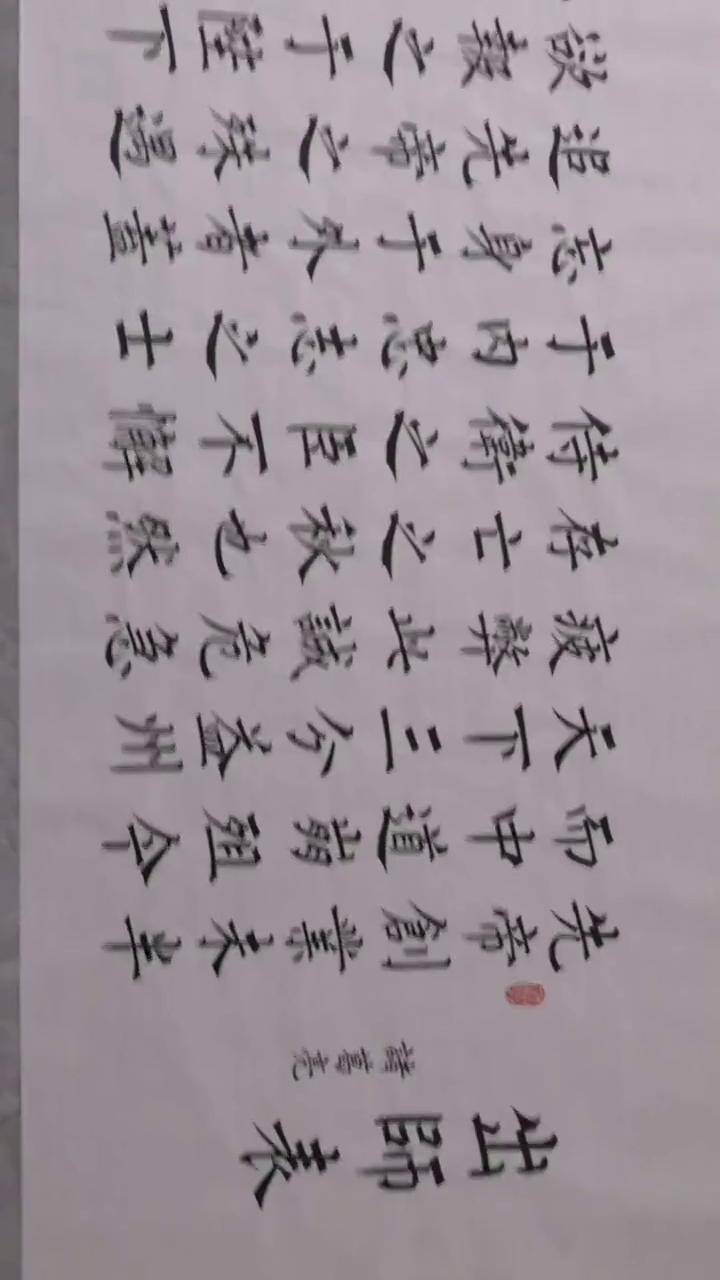 出師表
諸葛亮
先帝創業未半
而中道崩殂今
天下三分益州
疲弊此誠危急
存亡之秋也然
侍衛之臣不懈
于内忠志之士
忘身于外者蓋
追先帝之殊遇
欲報之于陛下